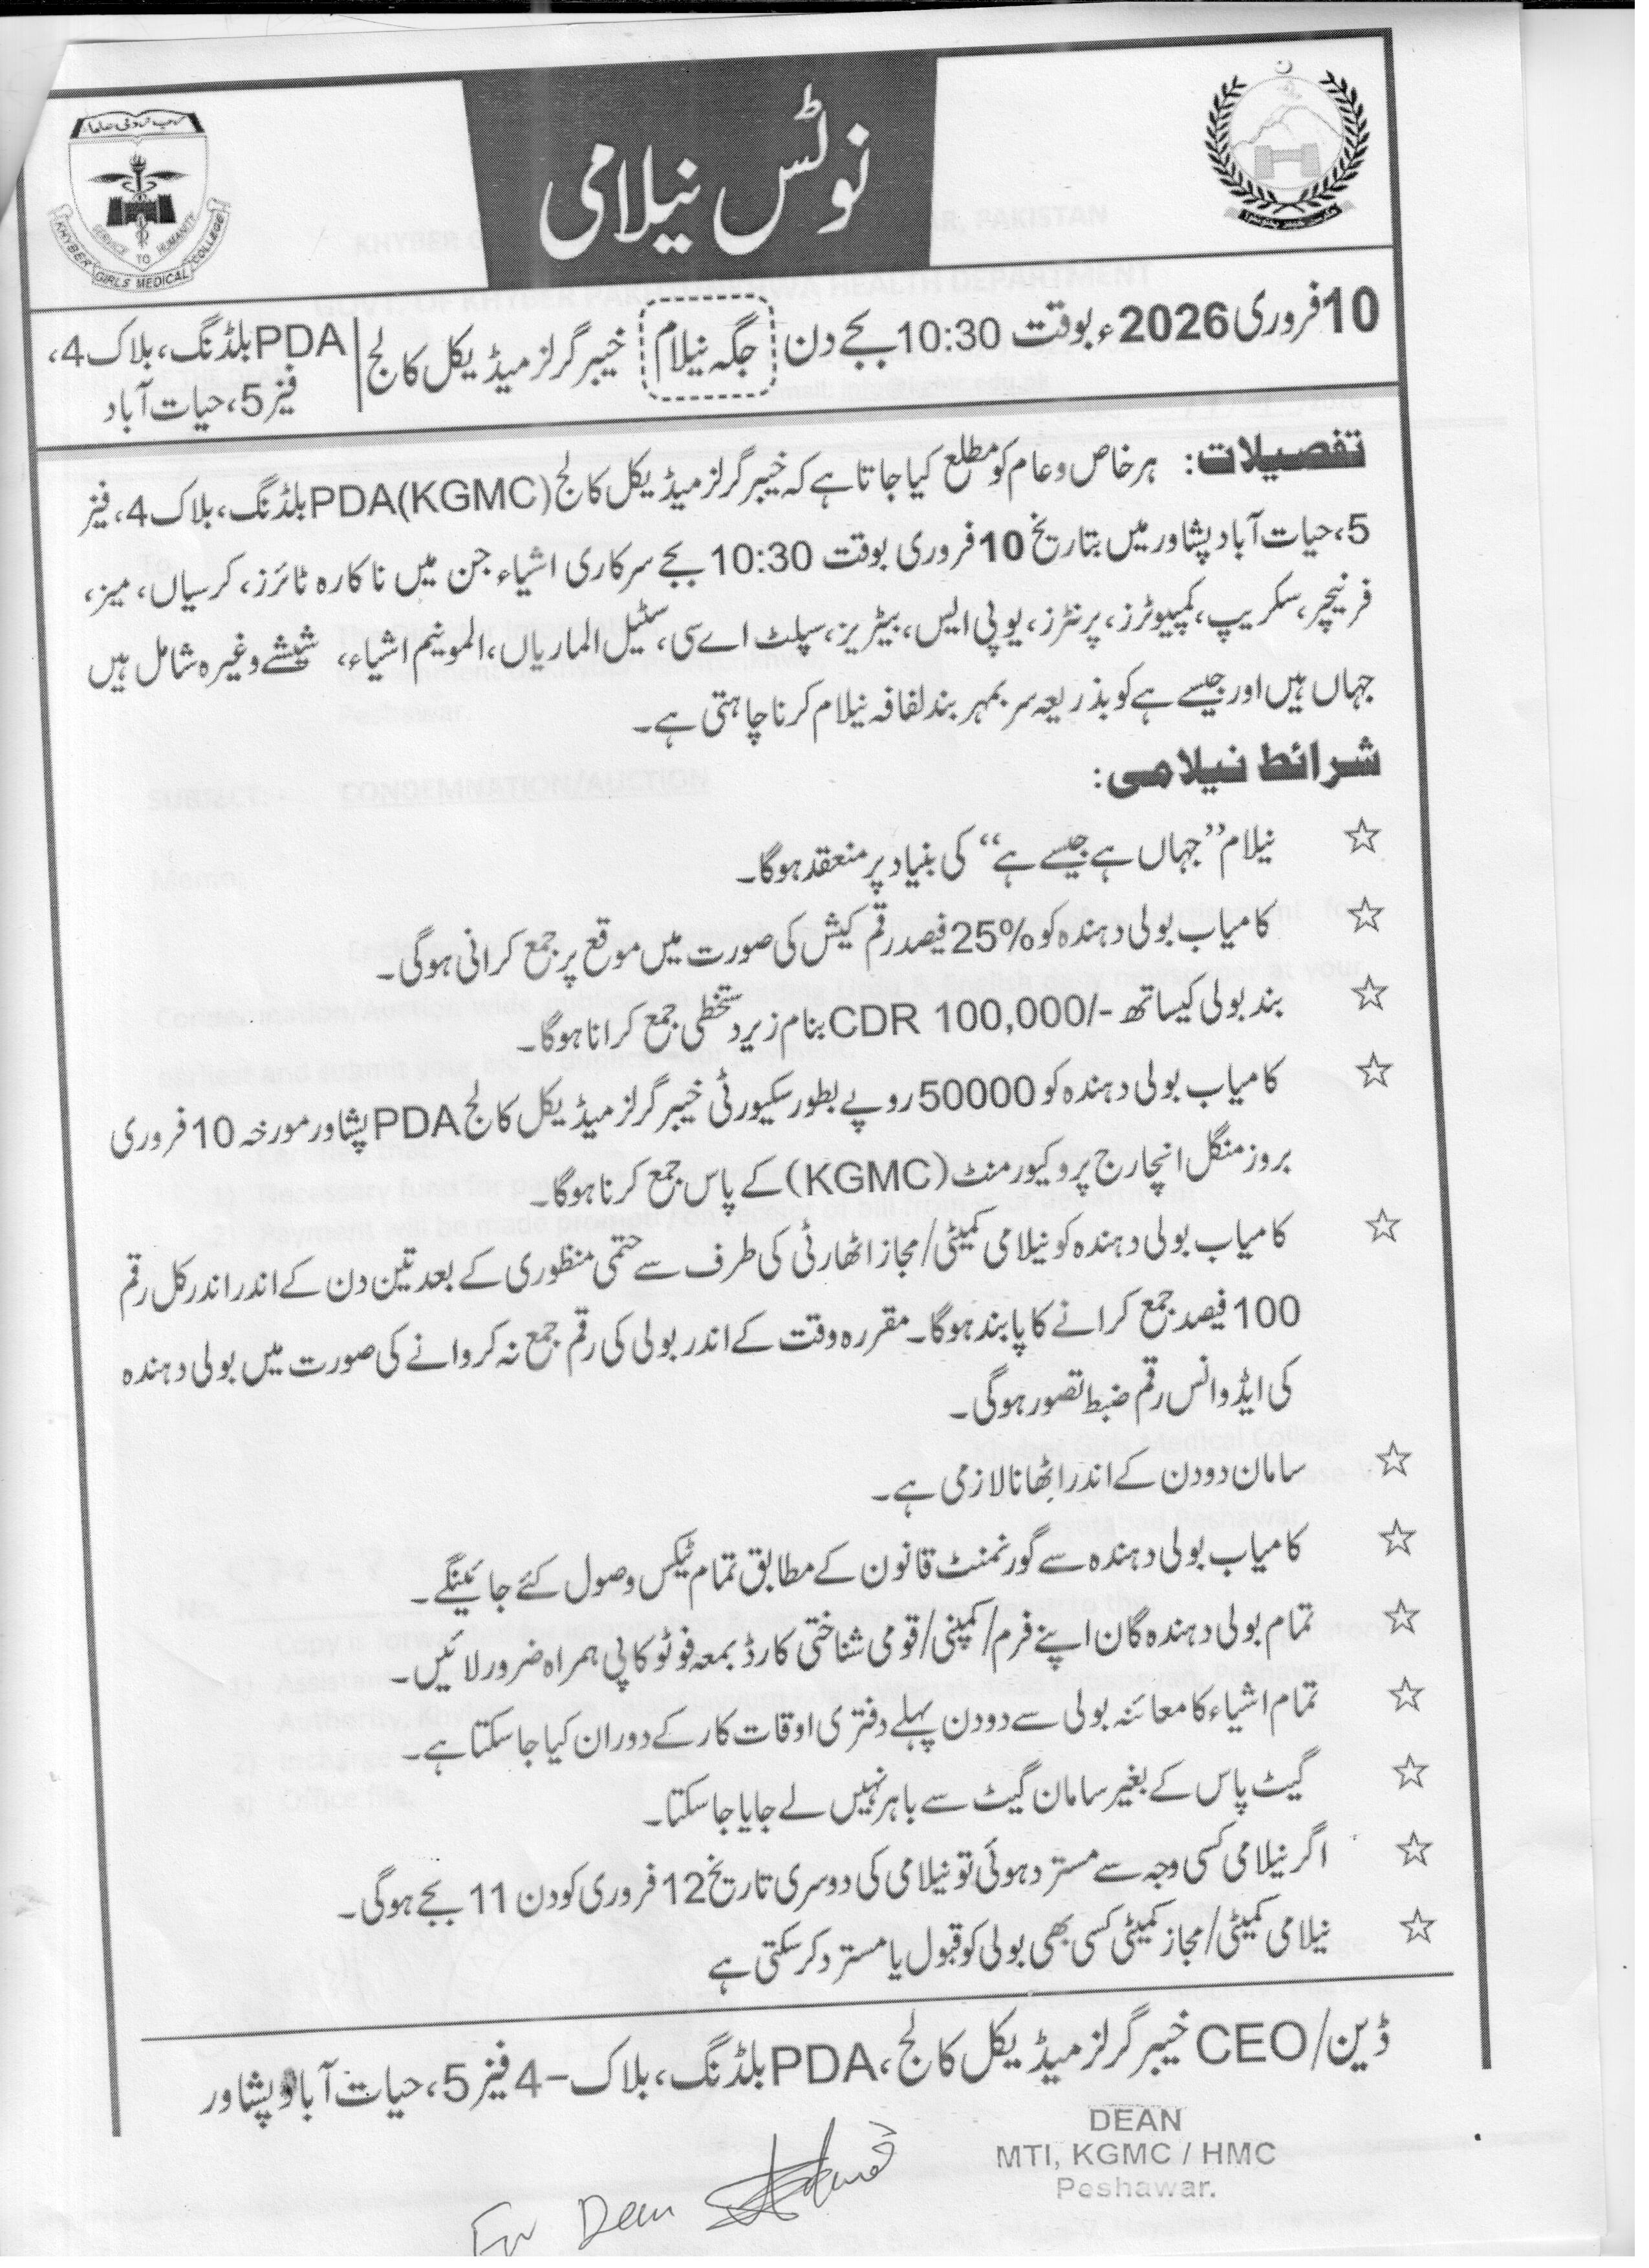 نوٹس نیلامی
KHYBER GIRLS MEDICAL COLLEGE
SERVICE TO HUMANITY
10 فروری 2026ء بوقت 10:30 بجے دن
جگہ نیلام
خیبر گرلز میڈیکل کالج
PDA بلڈنگ، بلاک 4،
فیز 5، حیات آباد
تفصیلات: ہر خاص و عام کو مطلع کیا جاتا ہے کہ خیبر گرلز میڈیکل کالج (KGMC) PDA بلڈنگ، بلاک 4، فیز
5، حیات آباد پشاور میں بتاریخ 10 فروری بوقت 10:30 بجے سرکاری اشیاء جن میں ناکارہ ٹائرز، کرسیاں، میز،
فرنیچر، سکریپ، کمپیوٹرز، پرنٹرز، یو پی ایس، بیٹریز، سپلٹ اے سی، سٹیل الماریاں، المونیم اشیاء، شیشے وغیرہ شامل ہیں
جہاں ہیں اور جیسے ہے کو بذریعہ سر بمہر بند لفافہ نیلام کرنا چاہتی ہے۔
شرائط نیلامی:
☆ نیلام ”جہاں ہے جیسے ہے“ کی بنیاد پر منعقد ہوگا۔
☆ کامیاب بولی دہندہ کو %25 فیصد رقم کیش کی صورت میں موقع پر جمع کرانی ہوگی۔
☆ بند بولی کیساتھ -/100,000 CDR بنام زیر دستخطی جمع کرانا ہوگا۔
☆ کامیاب بولی دہندہ کو 50000 روپے بطور سکیورٹی خیبر گرلز میڈیکل کالج PDA پشاور مورخہ 10 فروری
بروز منگل انچارج پروکیورمنٹ (KGMC) کے پاس جمع کرنا ہوگا۔
☆ کامیاب بولی دہندہ کو نیلامی کمیٹی/مجاز اتھارٹی کی طرف سے حتمی منظوری کے بعد تین دن کے اندر اندر کل رقم
100 فیصد جمع کرانے کا پابند ہوگا۔ مقررہ وقت کے اندر بولی کی رقم جمع نہ کروانے کی صورت میں بولی دہندہ
کی ایڈوانس رقم ضبط تصور ہوگی۔
☆ سامان دو دن کے اندر اٹھانا لازمی ہے۔
☆ کامیاب بولی دہندہ سے گورنمنٹ قانون کے مطابق تمام ٹیکس وصول کئے جائینگے۔
☆ تمام بولی دہندہ گان اپنے فرم/کمپنی/قومی شناختی کارڈ بمعہ فوٹو کاپی ہمراہ ضرور لائیں۔
☆ تمام اشیاء کا معائنہ بولی سے دو دن پہلے دفتری اوقات کار کے دوران کیا جاسکتا ہے۔
☆ گیٹ پاس کے بغیر سامان گیٹ سے باہر نہیں لے جایا جاسکتا۔
☆ اگر نیلامی کسی وجہ سے مسترد ہوئی تو نیلامی کی دوسری تاریخ 12 فروری کو دن 11 بجے ہوگی۔
☆ نیلامی کمیٹی/مجاز کمیٹی کسی بھی بولی کو قبول یا مسترد کر سکتی ہے
ڈین/CEO خیبر گرلز میڈیکل کالج، PDA بلڈنگ، بلاک-4 فیز 5، حیات آباد پشاور
DEAN
MTI, KGMC / HMC
Peshawar.
For Dean